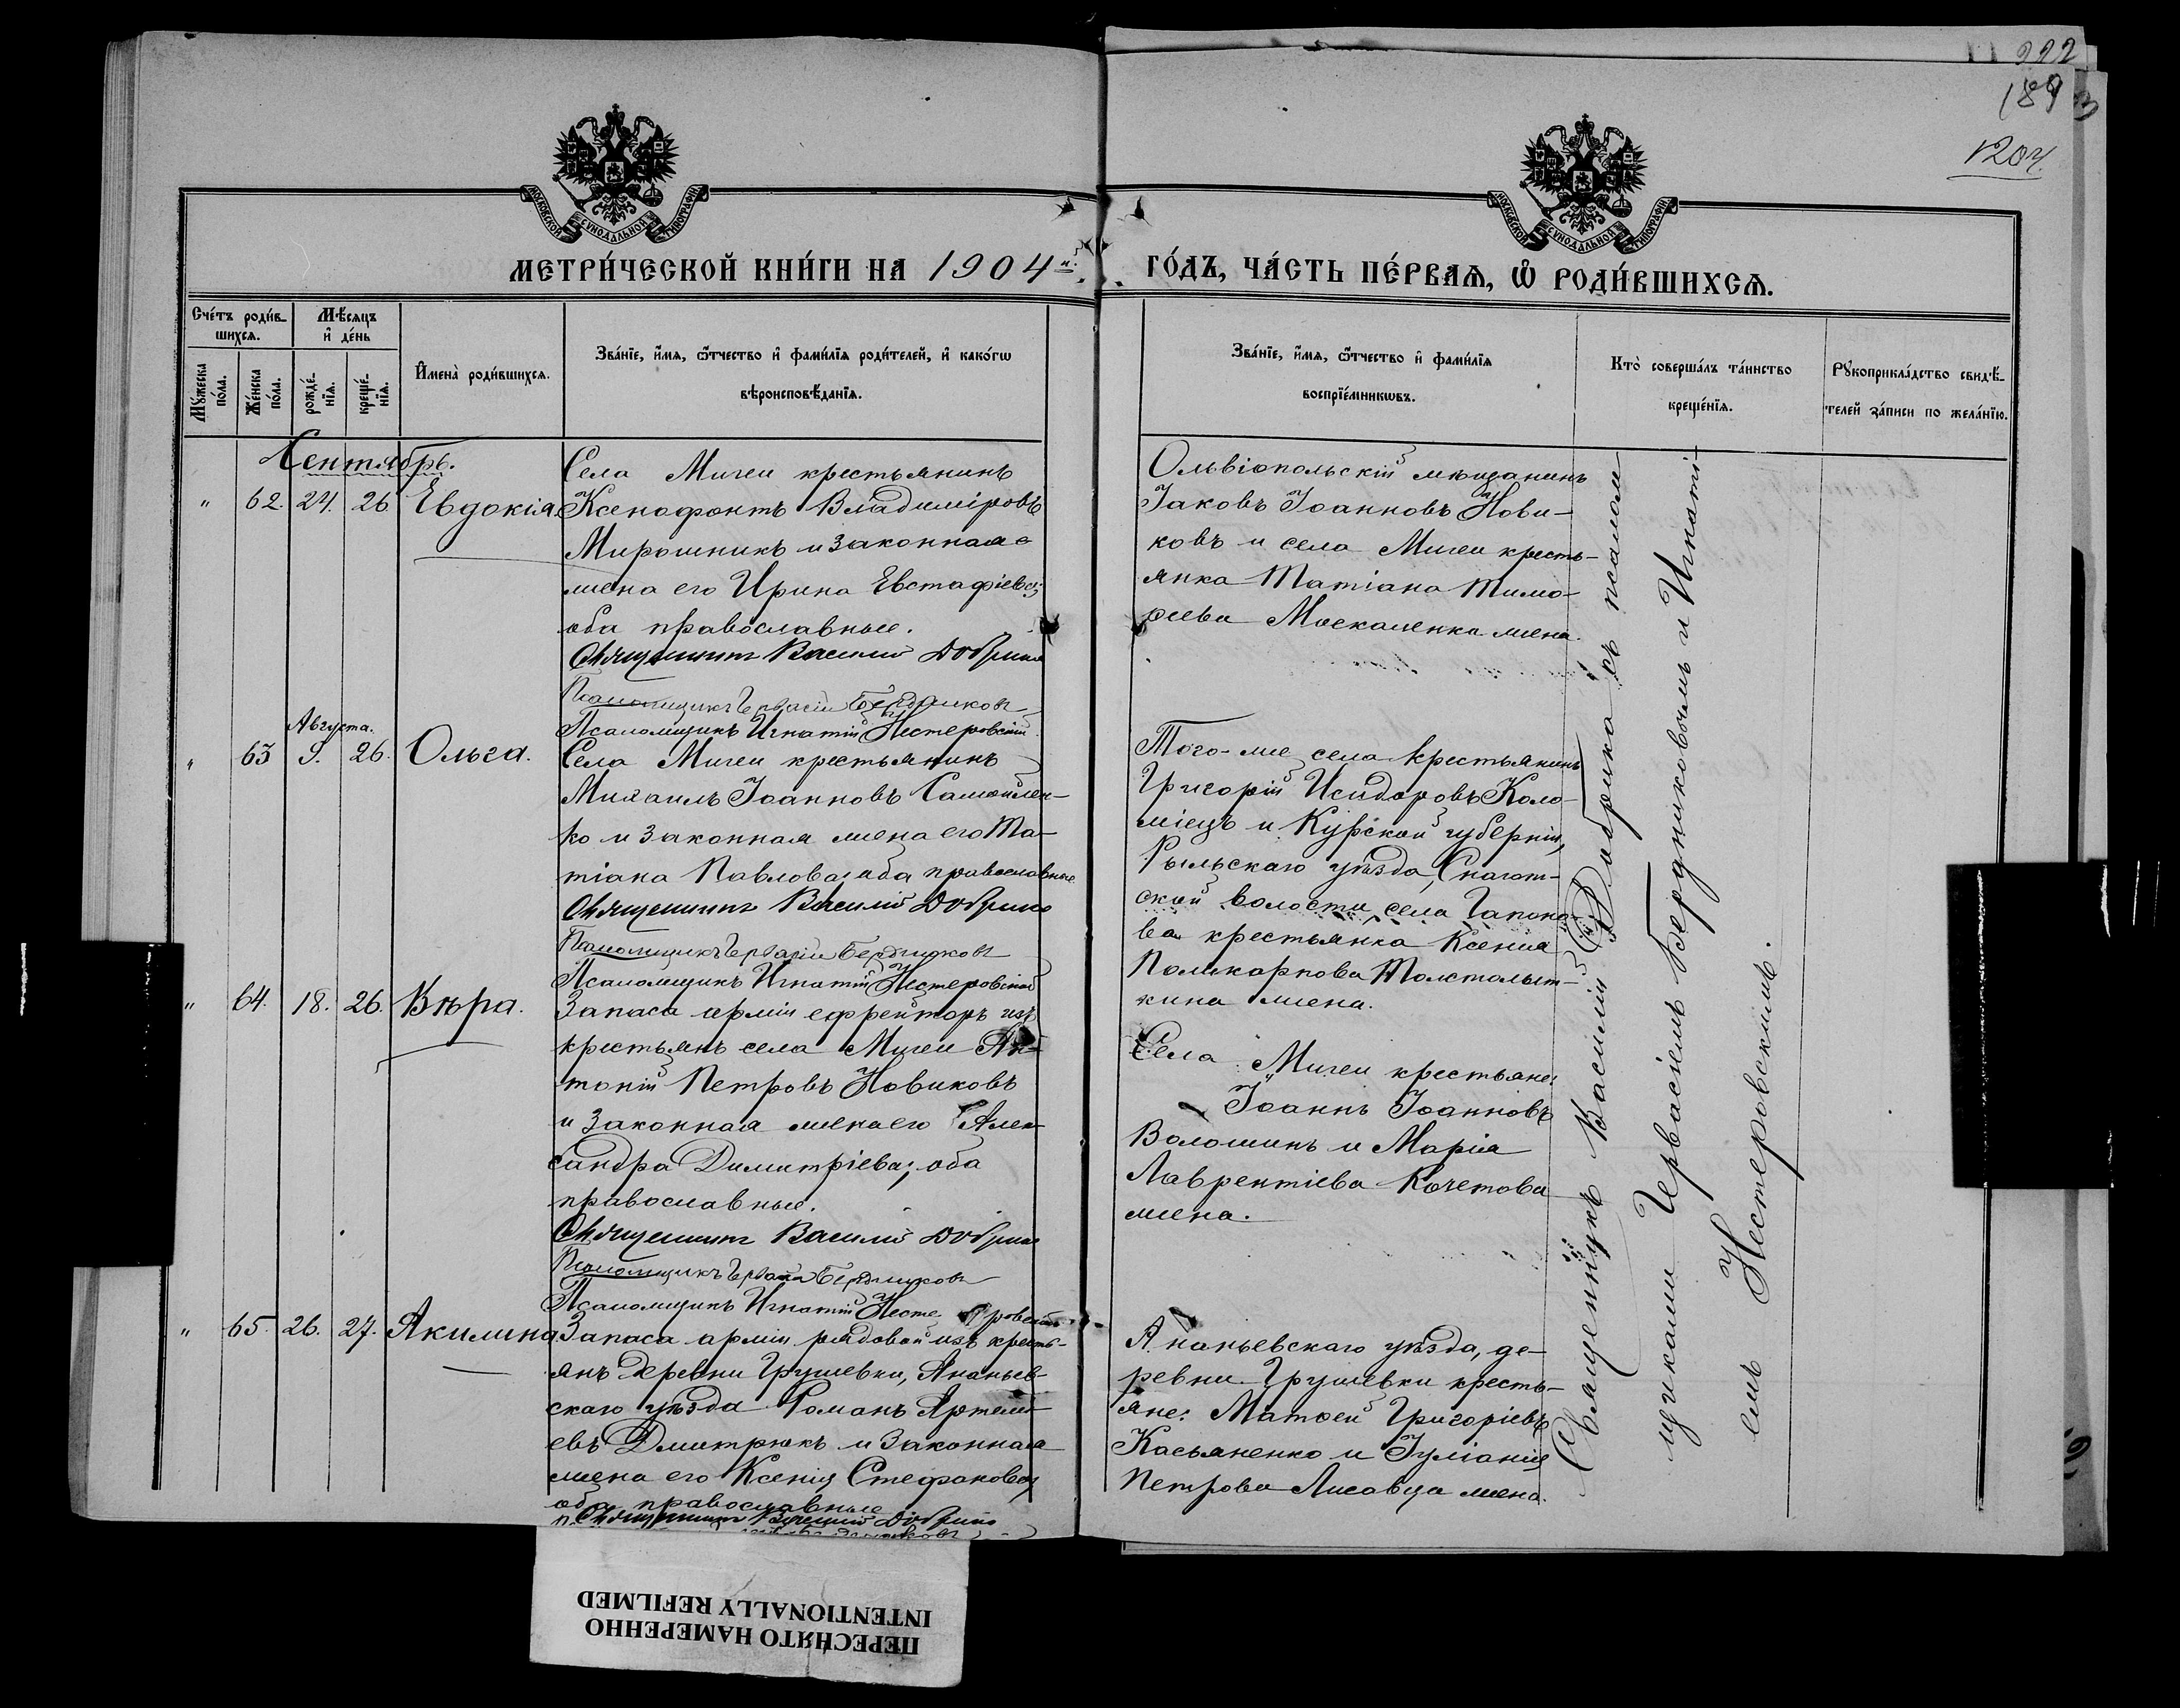 222
189
1204.
МОСКОВСКОЙ СУНОДАЛЬНОЙ ТИПОГРАФІИ
МОСКОВСКОЙ СУНОДАЛЬНОЙ ТИПОГРАФІИ
МЕТРИ́ЧЕСКОЙ КНИ́ГИ НА 1904й
ГО́ДЪ, ЧА́СТЬ ПЕ́РВАѦ, Ѡ҆ РОДИ́ВШИХСѦ.
Сче́тъ роди́в-
шихсѧ.
Мꙋ́жеска по́ла.
Же́нска по́ла.
Мѣ́сѧцъ
и҆ де́нь
рожде́-
нїѧ.
креще́-
нїѧ.
И҆мена̀ роди́вшихсѧ.
Зва́нїе, и҆́мѧ, ѻ҆́тчество и҆ фами́лїѧ роди́телей, и҆ како́гѡ
вѣроисповѣ́данїѧ.
Зва́нїе, и҆́мѧ, ѻ҆́тчество и҆ фами́лїѧ
воспрїе́мникѡвъ.
Кто̀ соверша́лъ та́инство
креще́нїѧ.
Рꙋкоприкла́дство свидѣ́-
телей за́писи по жела́нїю.
Сентябрь.
" 62. 24. 26 Евдокія.
Села Мигеи крестьянинъ
Ксенофонтъ Владиміровъ
Мирошникъ и законная
жена его Ирина Евстафіева;
оба православные.
Священникъ Василий Добрика
Псаломщикъ Гервасій Бердниковъ
Псаломщикъ Игнатій Нестеровскій
Ольвіопольскій мѣщанинъ
Іаковъ Іоанновъ Нови-
ковъ и села Мигеи кресть-
янка Татіана Тимо-
феева Москаленка жена.
Августа.
" 63 9. 26. Ольга.
Села Мигеи крестьянинъ
Михаилъ Іоанновъ Самойлен-
ко и законная жена его Та-
тіана Павлова; оба православные
Священникъ Василий Добрика
Псаломщикъ Гервасій Бердниковъ
Псаломщикъ Игнатій Нестеровскій
Того-же села крестьянинъ
Григорій Исидоровъ Коло-
міецъ и Курской губерніи,
Рыльскаго уѣзда, Снагост-
ской волости, села Гапоно-
ва крестьянка Ксенія
Поликарпова Толстолыт-
кина жена.
" 64. 18. 26. Вѣра.
Запаса арміи ефрейторъ изъ
крестьянъ села Мигеи Ан-
тоній Петровъ Новиковъ
и законная жена его Алек-
сандра Димитріева; оба
православные.
Священникъ Василий Добрика
Псаломщикъ Гервасій Бердниковъ
Псаломщикъ Игнатій Нестеровскій
Села Мигеи крестьяне:
Іоаннъ Іоанновъ
Волошинъ и Марія
Лаврентіева Кочетова
жена.
" 65. 26. 27. Акилина
Запаса арміи рядовой изъ кресть-
янъ деревни Грушевки, Ананьев-
скаго уѣзда Романъ Артемі-
евъ Дмитрюкъ и законная
жена его Ксенія Стефанова;
оба православные
Священникъ Василий Добрика
Ананьевскаго уѣзда, де-
ревни Грушевки кресть-
яне: Матѳей Григоріевъ
Касьяненко и Іуліанія
Петрова Лисавца жена.
Священникъ Василій Добрика съ псалом
щиками Гервасіемъ Бердниковымъ и Игнаті-
емъ Нестеровскимъ.
ПЕРЕСНЯТО НАМЕРЕННО
INTENTIONALLY REFILMED